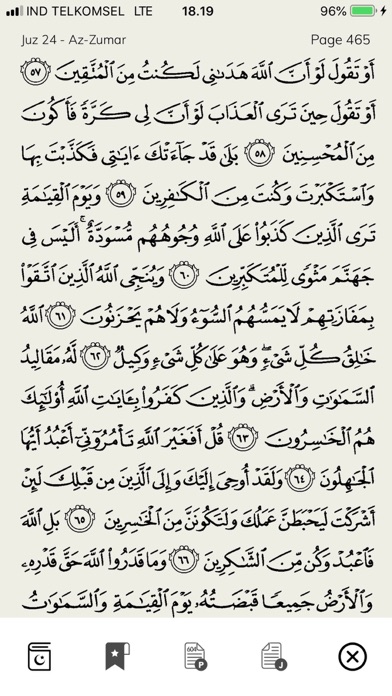 IND TELKOMSEL LTE 18.19 96%
Juz 24 - Az-Zumar Page 465
أَوْ تَقُولَ لَوْ أَنَّ اللَّهَ هَدَىٰنِى لَكُنتُ مِنَ الْمُتَّقِينَ ٥٧
أَوْ تَقُولَ حِينَ تَرَى الْعَذَابَ لَوْ أَنَّ لِى كَرَّةً فَأَكُونَ
مِنَ الْمُحْسِنِينَ ٥٨ بَلَىٰ قَدْ جَآءَتْكَ ءَايَٰتِى فَكَذَّبْتَ بِهَا
وَاسْتَكْبَرْتَ وَكُنتَ مِنَ الْكَٰفِرِينَ ٥٩ وَيَوْمَ الْقِيَٰمَةِ
تَرَى الَّذِينَ كَذَبُوا۟ عَلَى اللَّهِ وُجُوهُهُم مُّسْوَدَّةٌ ۚ أَلَيْسَ فِى
جَهَنَّمَ مَثْوًى لِّلْمُتَكَبِّرِينَ ٦٠ وَيُنَجِّى اللَّهُ الَّذِينَ اتَّقَوْا۟
بِمَفَازَتِهِمْ لَا يَمَسُّهُمُ السُّوٓءُ وَلَا هُمْ يَحْزَنُونَ ٦١ اللَّهُ
خَٰلِقُ كُلِّ شَىْءٍ ۖ وَهُوَ عَلَىٰ كُلِّ شَىْءٍ وَكِيلٌ ٦٢ لَّهُۥ مَقَالِيدُ
السَّمَٰوَٰتِ وَالْأَرْضِ ۗ وَالَّذِينَ كَفَرُوا۟ بِـَٔايَٰتِ اللَّهِ أُو۟لَٰٓئِكَ
هُمُ الْخَٰسِرُونَ ٦٣ قُلْ أَفَغَيْرَ اللَّهِ تَأْمُرُوٓنِّىٓ أَعْبُدُ أَيُّهَا
الْجَٰهِلُونَ ٦٤ وَلَقَدْ أُوحِىَ إِلَيْكَ وَإِلَى الَّذِينَ مِن قَبْلِكَ لَئِنْ
أَشْرَكْتَ لَيَحْبَطَنَّ عَمَلُكَ وَلَتَكُونَنَّ مِنَ الْخَٰسِرِينَ ٦٥ بَلِ اللَّهَ
فَاعْبُدْ وَكُن مِّنَ الشَّٰكِرِينَ ٦٦ وَمَا قَدَرُوا۟ اللَّهَ حَقَّ قَدْرِهِۦ
وَالْأَرْضُ جَمِيعًا قَبْضَتُهُۥ يَوْمَ الْقِيَٰمَةِ وَالسَّمَٰوَٰتُ
604 P J